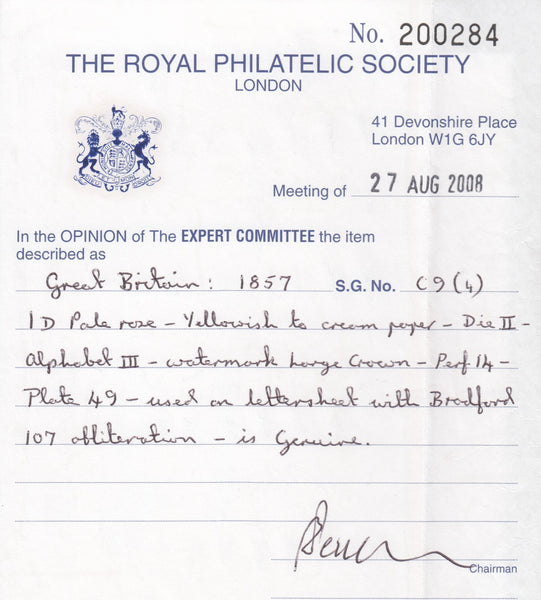 No. 200284
THE ROYAL PHILATELIC SOCIETY
LONDON
41 Devonshire Place
London W1G 6JY
Meeting of 27 AUG 2008
In the OPINION of The EXPERT COMMITTEE the item
described as
Great Britain: 1857 S.G. No. C9(4)
1D Pale rose - Yellowish to cream paper - Die II -
Alphabet III - watermark Large Crown - Perf 14 -
Plate 49 - used on lettersheet with Bradford
107 obliteration - is Genuine.
Chairman